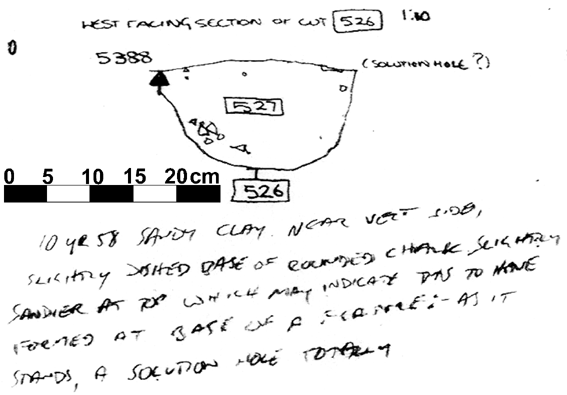 WEST FACING SECTION OF CUT 526 1:10
0
5388
(SOLUTION HOLE?)
527
0 5 10 15 20 cm
526
10 YR 58 SANDY CLAY. NEAR VERT SIDE,
SLIGHTLY DISHED BASE OF ROUNDED CHALK SLIGHTLY
SANDIER AT TOP WHICH MAY INDICATE THIS TO HAVE
FORMED AT BASE OF A AS IT
STANDS, A SOLUTION HOLE TOTALLY